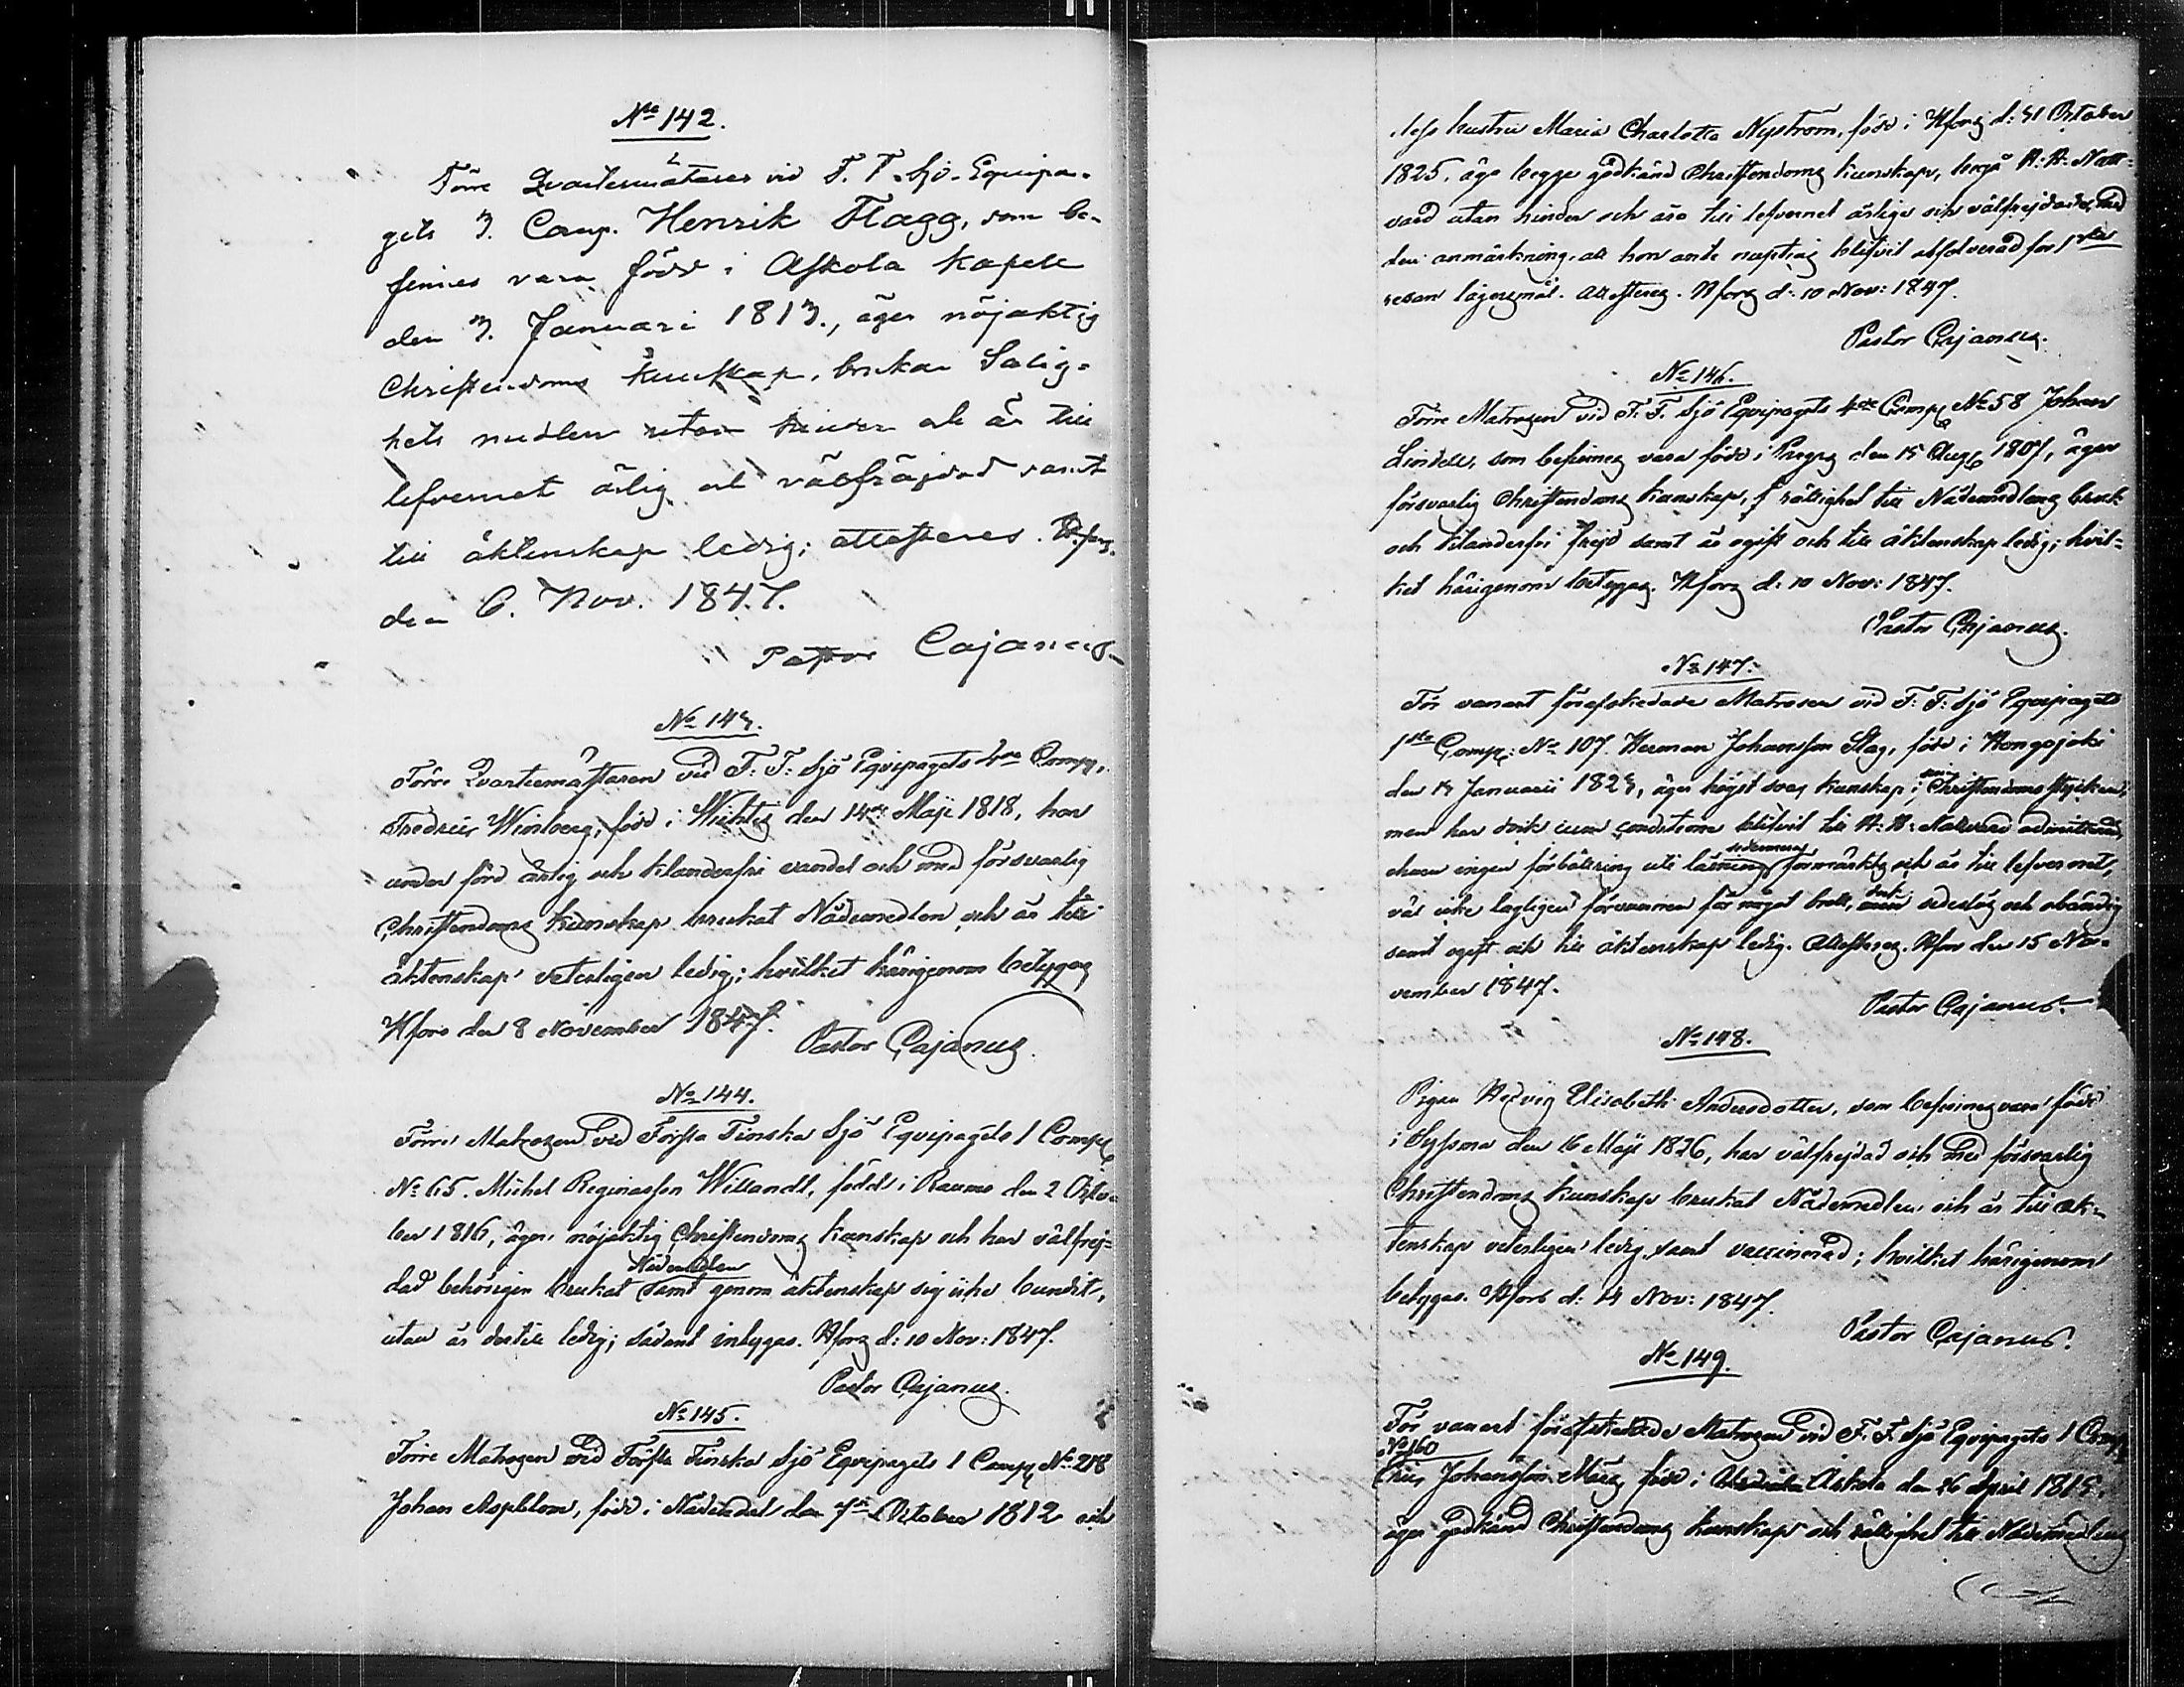 No 142.
Förre Qvartermästaren vid F. F. Sjö-Equipa-
gets 3. Comp. Henrik Flagg, som be-
finnes vara född i Askola kapell
den 3. Januari 1813., äger nöjaktig
Christendoms kunskap, brukar Salig-
hets medlen utan hinder och är till
lefvernet ärlig och välfräjdad samt
till äktenskap ledig; attesteras. H:fors
den 6. Nov. 1847.
Pastor Cajanus.
No 143.
Förre Qvartermästaren vid F: F: Sjö Eqvipagets 4de Comp.
Fredric Winberg, född i Wichtis den 14de Maji 1818, har
under förd ärlig och klanderfri vandel och med försvarlig
Christendoms kunskap brukat Nådemedlen och är till
äktenskap veterligen ledig; hvilket härigenom betygas
Hfors den 8 November 1847.
Pastor Cajanus.
No 144.
Förre Matrosen vid Första Finska Sjö Eqvipagets 1 Comp
No 65. Michel Reginasson Willandt, född i Raumo den 2 Octo-
ber 1816, äger nöjaktig Christendoms kunskap och har välfrej-
Nådemedlen
dad behörigen brukat samt genom äktenskap sig icke bundit,
utan är dertill ledig; sådant intygas. Hfors d: 10 Nov: 1847.
Pastor Cajanus.
No 145.
Förre Matrosen vid Första Finska Sjö Eqvipagets 1 Comp No 218
Johan Asplblom, född i Nådendal den 7de October 1812 och
dess hustru Maria Charlotta Nyström, född i Hfors d: 31 October
1825, äga begge godkänd Christendoms kunskap, begå H: H: Natt-
vard utan hinder och äro till lefvernet ärlige och välfrejdade, med
den anmärkning, att hon ante nuptias blifvit absolverad för 1sta
resan lägersmål. Attesteras. Hfors d: 10 Nov: 1847.
Pastor Cajanus.
No 146.
Förre Matrosen vid F: F: Sjö Eqvipagets 4de Comp No 58 Johan
Lindell, som befinnes vara född i Pargas den 15 Aug 1807, äger
försvarlig Christendoms kunskap, rättighet till Nådemedlens bruk
och klanderfri frejd samt är ogift och till äktenskap ledig; hvil-
ket härigenom betygas. Hfors d: 10 Nov: 1847.
Pastor Cajanus.
No 147.
För vanart förafskedade Matrosen vid F: F: Sjö Eqvipagets
1sta Comp: No 107. Herman Johansson Slag, född i Kongajoki
den 14 Januarii 1823, äger högst svag kunskap i Christendoms stycken,
men har dock cum conditione blifvit till H: H: Nattvard admitterad,
sedermera
churu ingen förbättring uti läsning förmärkts och är till lefvernet,
väl icke lagligen förvunnen för något brott, dock sedeslös och obändig
samt ogift och till äktenskap ledig. Attesteras. Hfors den 15 No-
vember 1847.
Pastor Cajanus.
No 148.
Pigan Hedvig Elisabeth Andersdotter, som befinnes vara född
i Sysmä den 16 Maji 1826, har välfrejdad och med försvarlig
Christendoms kunskap brukat Nådemedlen och är till äk-
tenskap veterligen ledig samt vaccinerad; hvilket härigenom
betygas. Hfors d: 14 Nov: 1847.
Pastor Cajanus.
No 149.
För vanart förafskedade Matrosen vid F. F. Sjö Eqvipagets 1 Comp
No 160
Johansson född i Askola den 26 April 1815,
äger godkänd Christendoms kunskap och rättighet till Nådemedlens